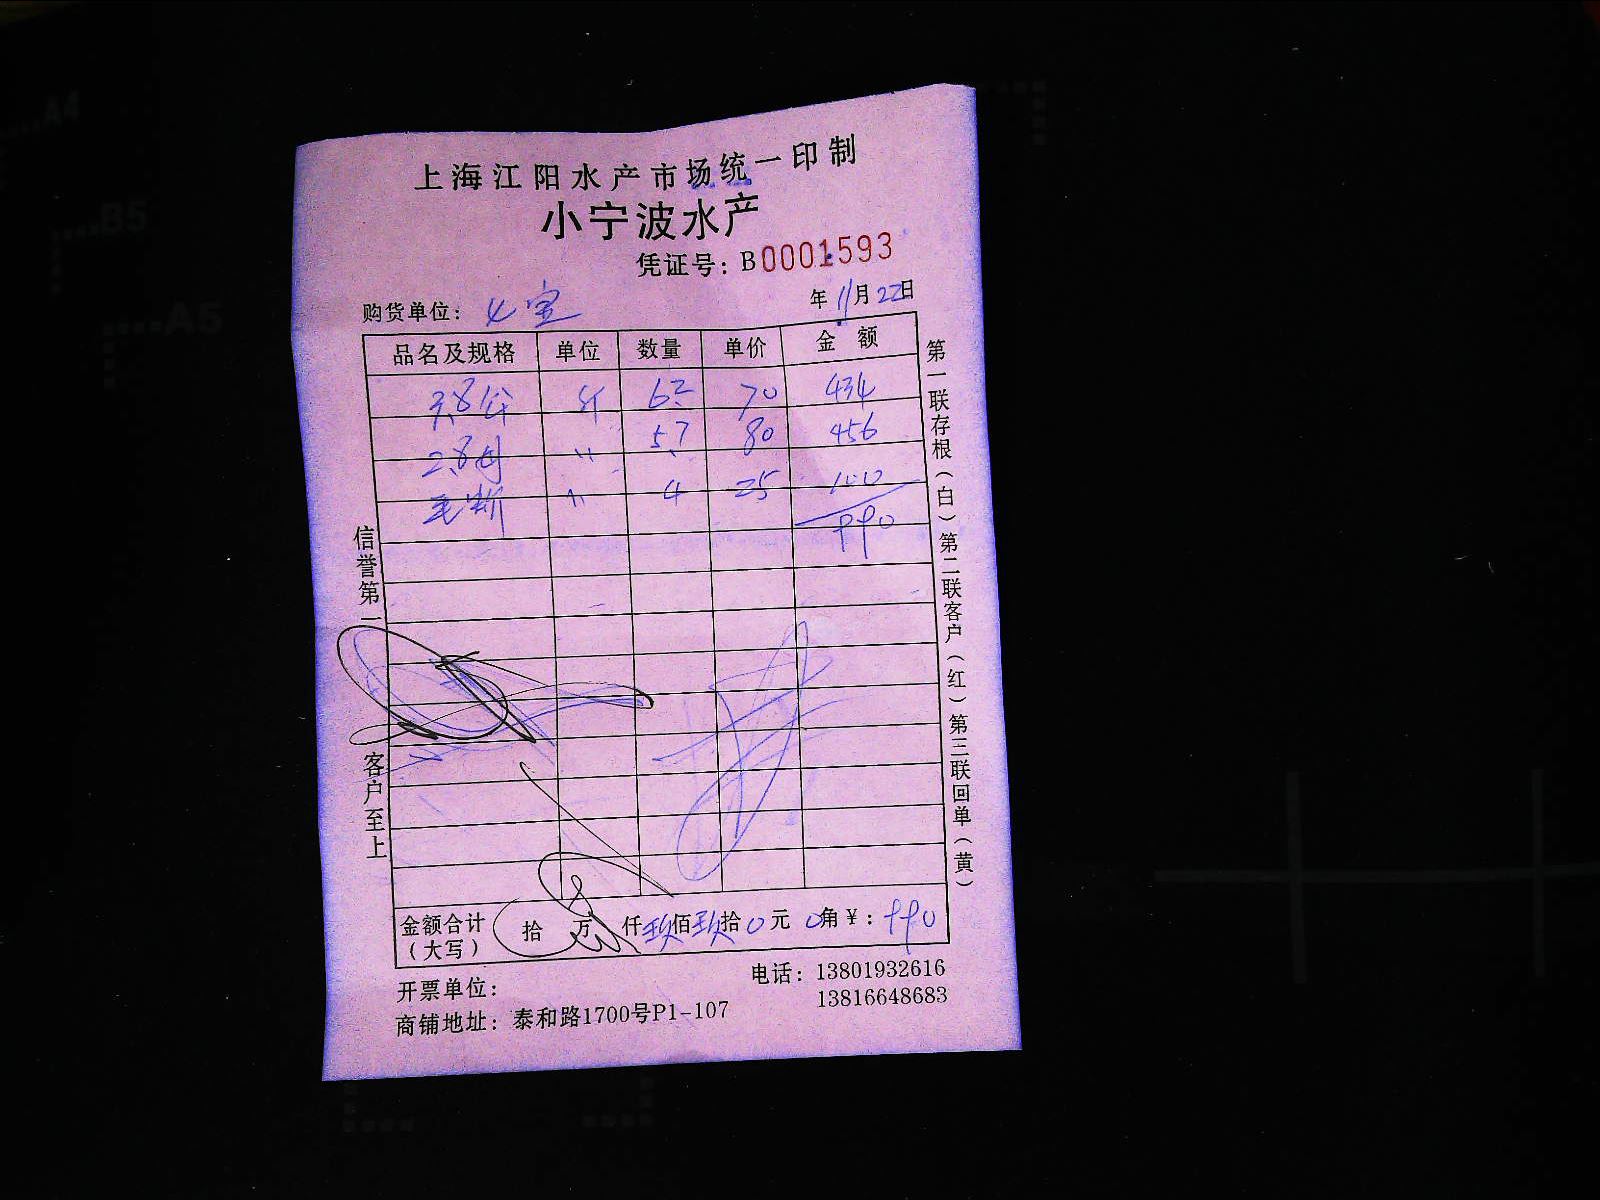 上海江阳水产市场统一印制
小宁波水产
凭证号：B0001593
购货单位： 宝 年11月22日
品名及规格 单位 数量 单价 金额
3.8公 斤 6.2 70 434
2.8母 〃 5.7 80 456
毛蟹 〃 4 25 100
990
信誉第一 客户至上
第一联存根（白）第二联客户（红）第三联回单（黄）
金额合计（大写） 拾 万 仟玖佰玖拾0元 0角￥：990
开票单位：
电话：13801932616
13816648683
商铺地址：泰和路1700号P1-107
A4
B5
A5